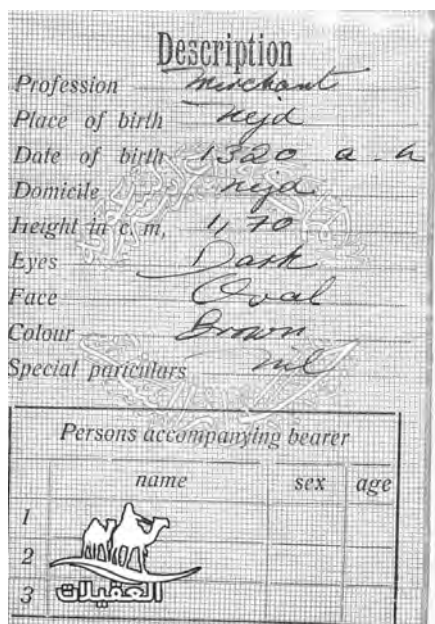 Description
Profession Merchant
Place of birth Nejd
Date of birth 1320 a.h
Domicile Nejd
Height in c, m, 1,70
Eyes Dark
Face Oval
Colour Brown
Special pariculars nil
Persons accompanying bearer
name sex age
1
2
3
العقيلات